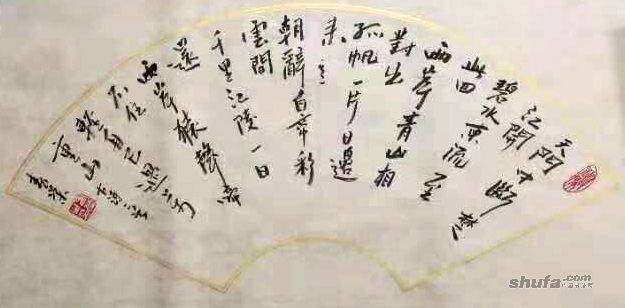 天門中斷楚
江開
碧水東流至
此回
兩岸青山相
對出
孤帆一片日邊
來
朝辭白帝彩
雲間
千里江陵一日
還
兩岸猿聲啼
不住
輕舟已過萬
重山
古詩二首
shufa.com